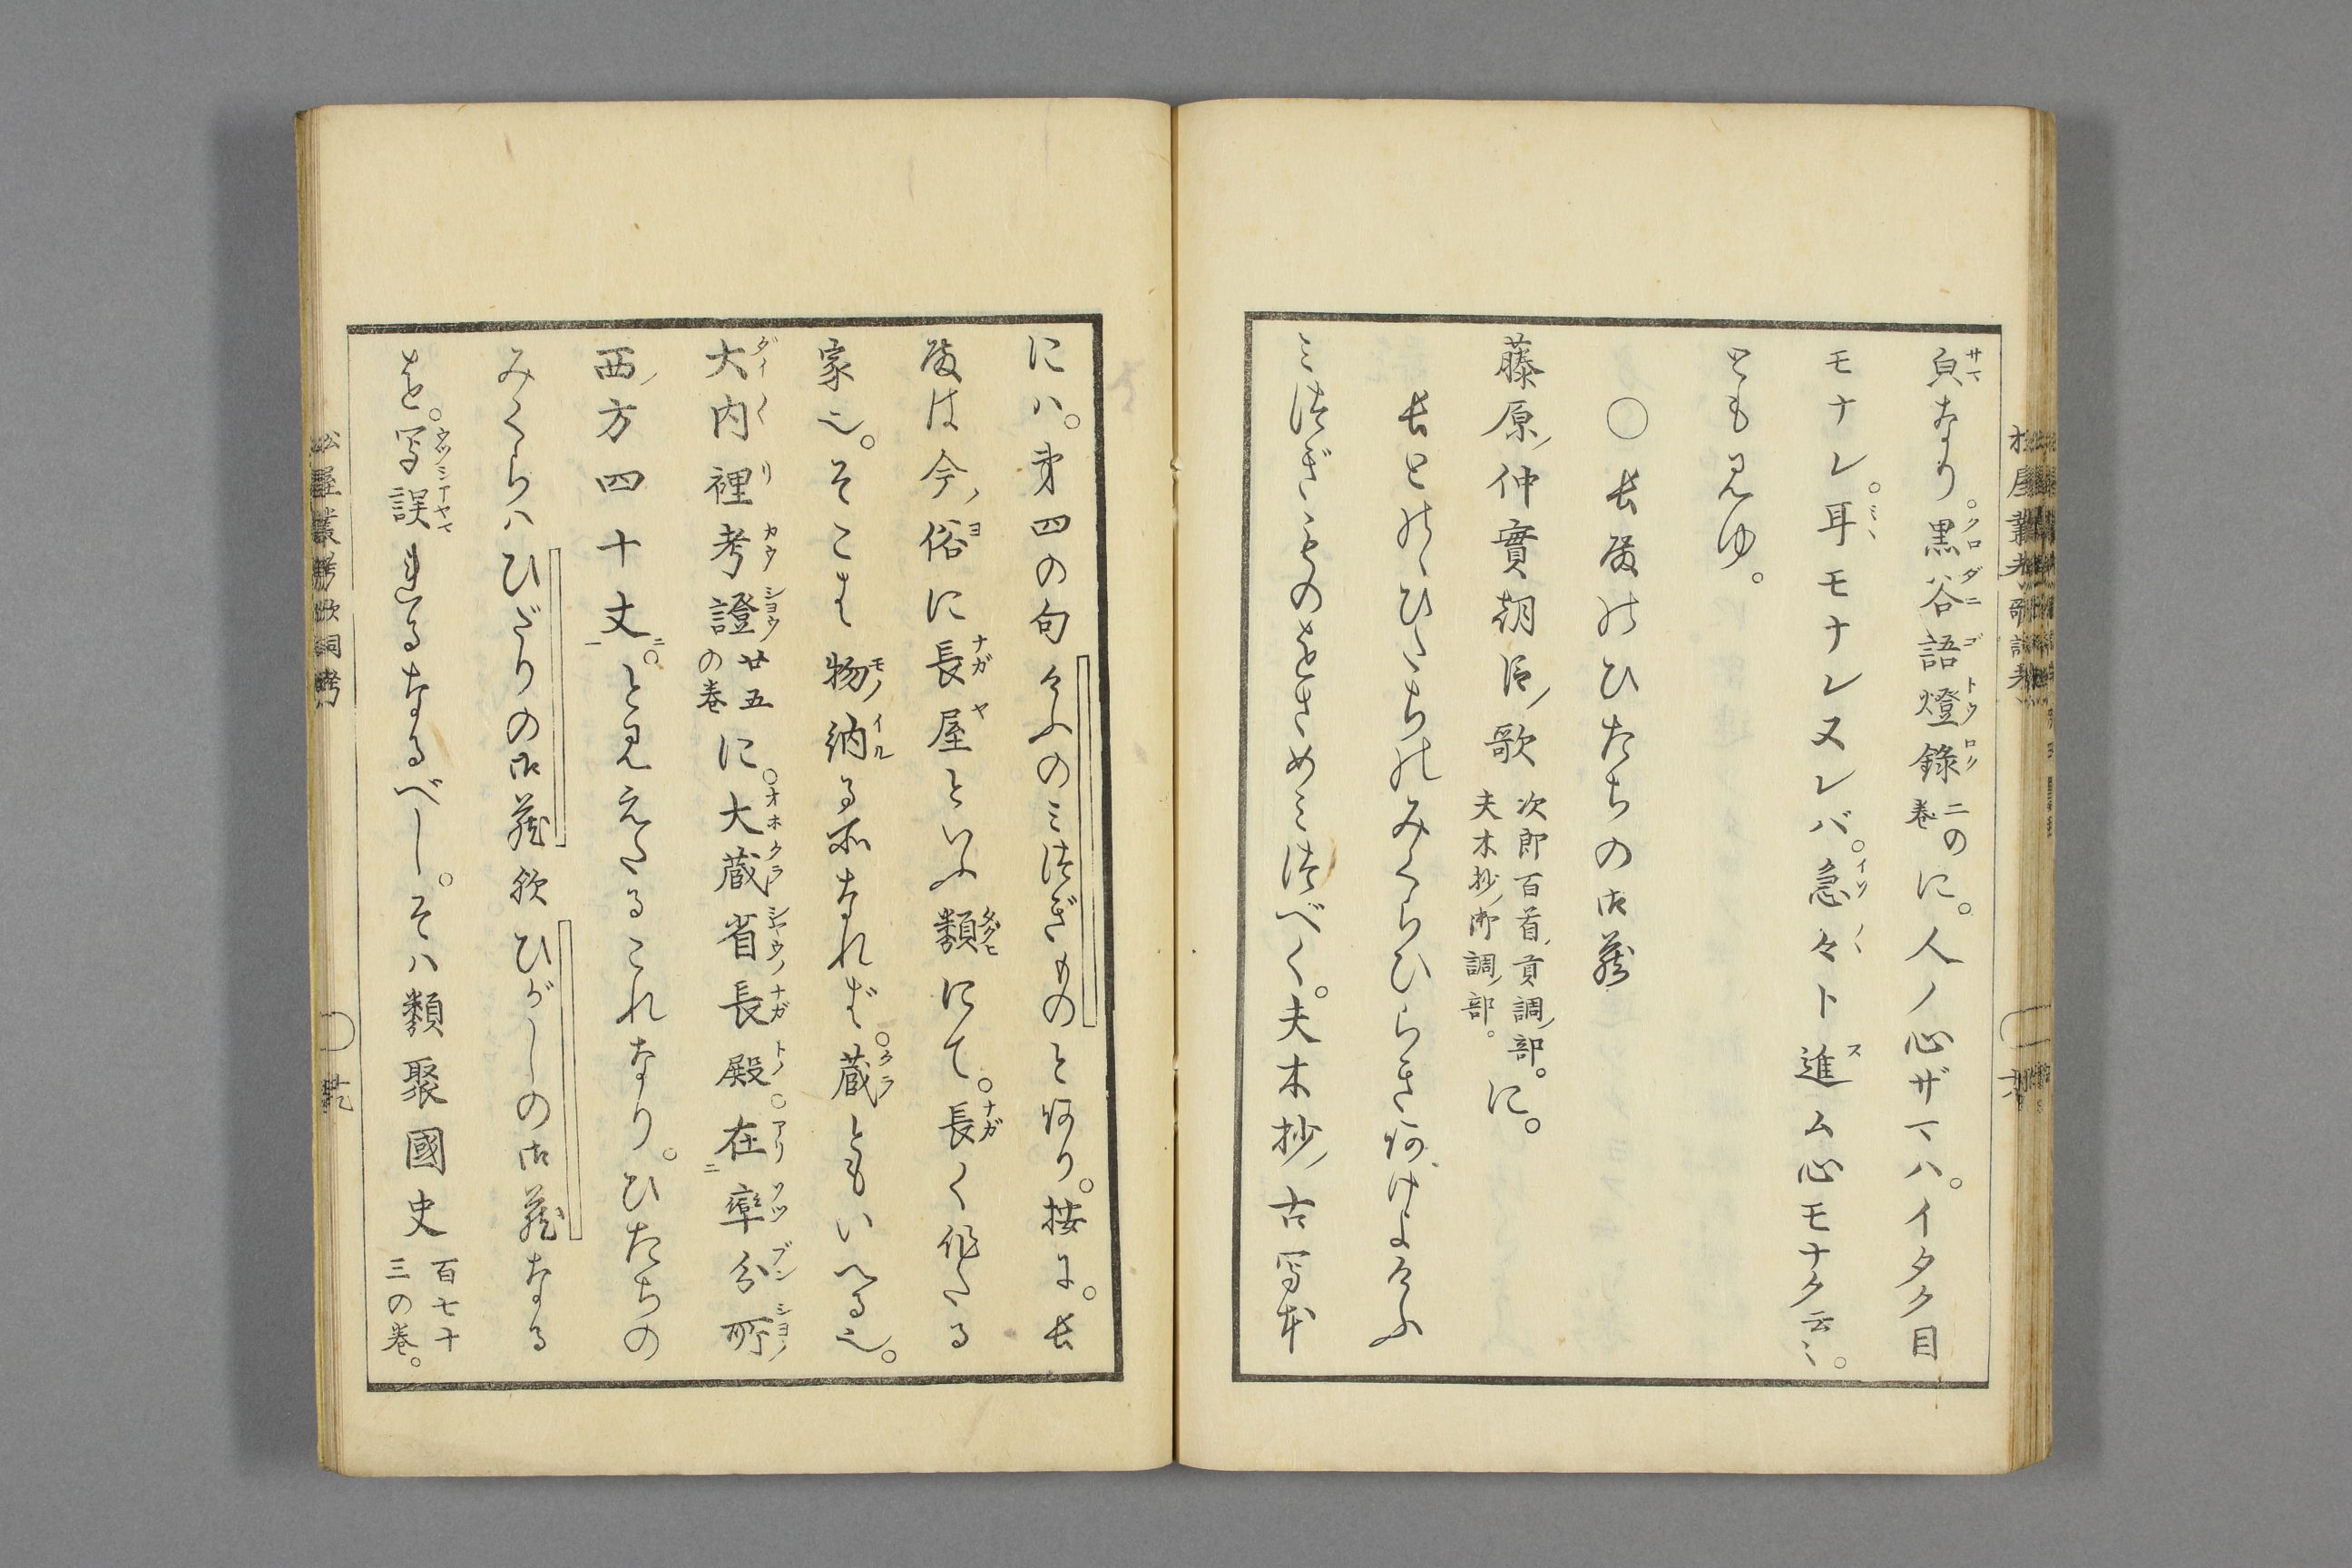 皃なり。黒谷語燈錄二の卷に。人ノ心ザマハ。イタク目
モナレ。耳モナレヌレバ。急々ト進ム心モナク云〻。
とも見ゆ。
〇長殿のひたちの御藏
藤原仲實朝臣歌次郎百首貢調部。夫木抄御調部。に。
長とのゝひたちのみくらひらきあけよけふ
みつぎものをさめみつべく。夫木抄古寫本
には。第四の句けふのみつぎものとあり。按に。長
殿は今俗に長屋といふ類にて。長く作たる
家也。そこは物納る所なれば。蔵ともいへる也。
大内裡考證廿五の卷に。大蔵省長殿。在率分所
西方四十丈。と見えたるこれなり。ひたちの
みくらはひだりの御藏欤ひがしの御藏なる
を。写誤れるなるべし。そは類聚國史百七十三の卷。
松屋叢考歌詞考